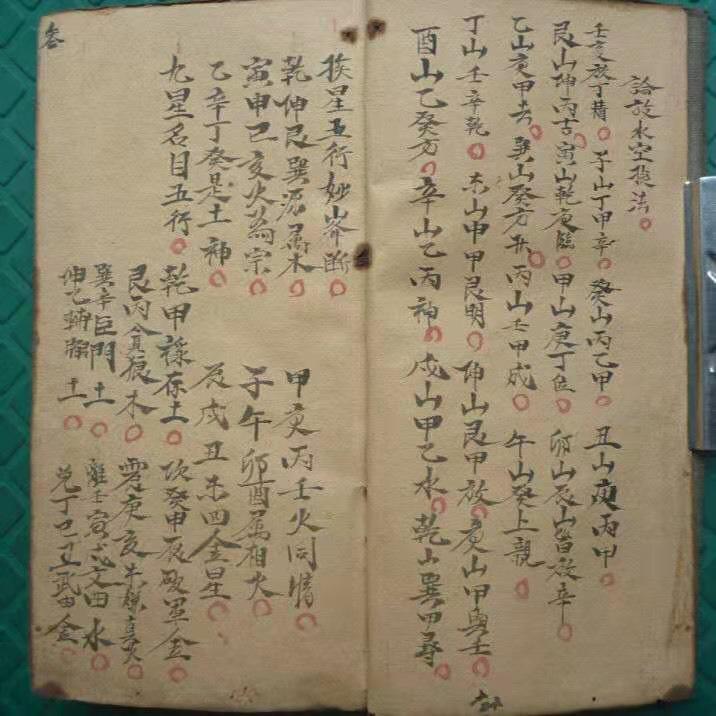 論放水空接法
壬亥放丁精 子山丁甲辛 癸山丙乙甲 丑山庚丙甲
艮山坤丙吉 寅山乾庚臨 甲山庚丁位 卯山辰山皆放辛
乙山庚甲去 巽山癸方 丙山壬甲成 午山癸上親
丁山壬辛乾 未山申甲艮明 坤山艮甲放 庚山甲與壬
酉山乙癸方 辛山乙丙神 戌山甲乙水 乾山巽甲尋
叁
挨星五行妙山峯斷
乾坤艮巽源屬木 甲庚丙壬火同情
寅申巳亥火為宗 子午卯酉屬相火
乙辛丁癸是土神 辰戌丑未四金星
九星名目五行
乾甲祿存土 坎癸申辰破軍金
艮丙貪狼木 震庚亥未廉貞火
巽辛巨門土 離壬寅戌文曲水
坤乙輔弼土 兌丁巳丑武曲金